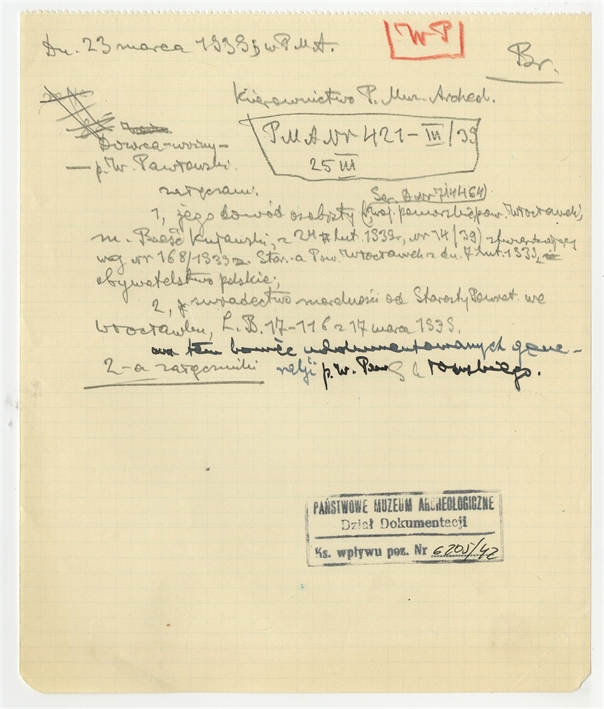 Dn. 23 marca 1939, w P.M.A.
W P
Br.
Kierownictwo P. Muz. Archeol.
P.M.A. Nr 421-III/39
25 III
p. W. Pawłowski.
załączam:
Ser. D Nr 714464)
1, jego dowód osobisty (woj. pomorskie, pow. Włocławek,
m. Brześć Kujawski, z 24 lut. 1939 r., nr 14/39) stwierdzający
wg nr 168/1939 Star. Pow. Włocławek z dn. 7 lut. 1939,
obywatelstwo polskie;
2, świadectwo moralności od Starosty Powiat. we
Włocławku, L.B. 17-116 z 17 marca 1939.
udokumentowanych gene-
2-a załączniki
ralji p. W.
PAŃSTWOWE MUZEUM ARCHEOLOGICZNE
Dział Dokumentacji
Ks. wpływu poz. Nr 6205/42